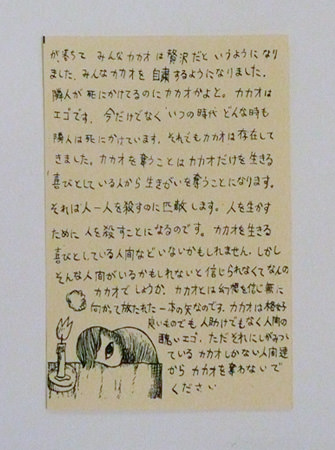 が、巻ちて みんなカカオは贅沢だというようになり
ました。みんなカカオを自粛するようになりました。
隣人が死にかけてるのにカカオかよと。カカオは
エゴです。今だけでなく いつの時代 どんな時も
隣人は死にかけています。それでもカカオは存在して
きました。カカオを奪うことはカカオだけを生きる
喜びとしている人から生きがいを奪うことになります。
それは人一人を殺すのに匹敵します。人を生かす
ために人を殺すことになるのです。カカオを生きる
喜びとしている人間などいないかもしれません。しかし
そんな人間がいるかもしれないと信じられなくてなんの
カカオでしょうか。カカオとは幻想を信じ無に
向かって放たれた一本の矢なのです。カカオは格好
良いものでも人助けでもなく人間の
醜いエゴ。ただそれにしがみつい
ているカカオしかない人間達
からカカオを奪わないで
ください